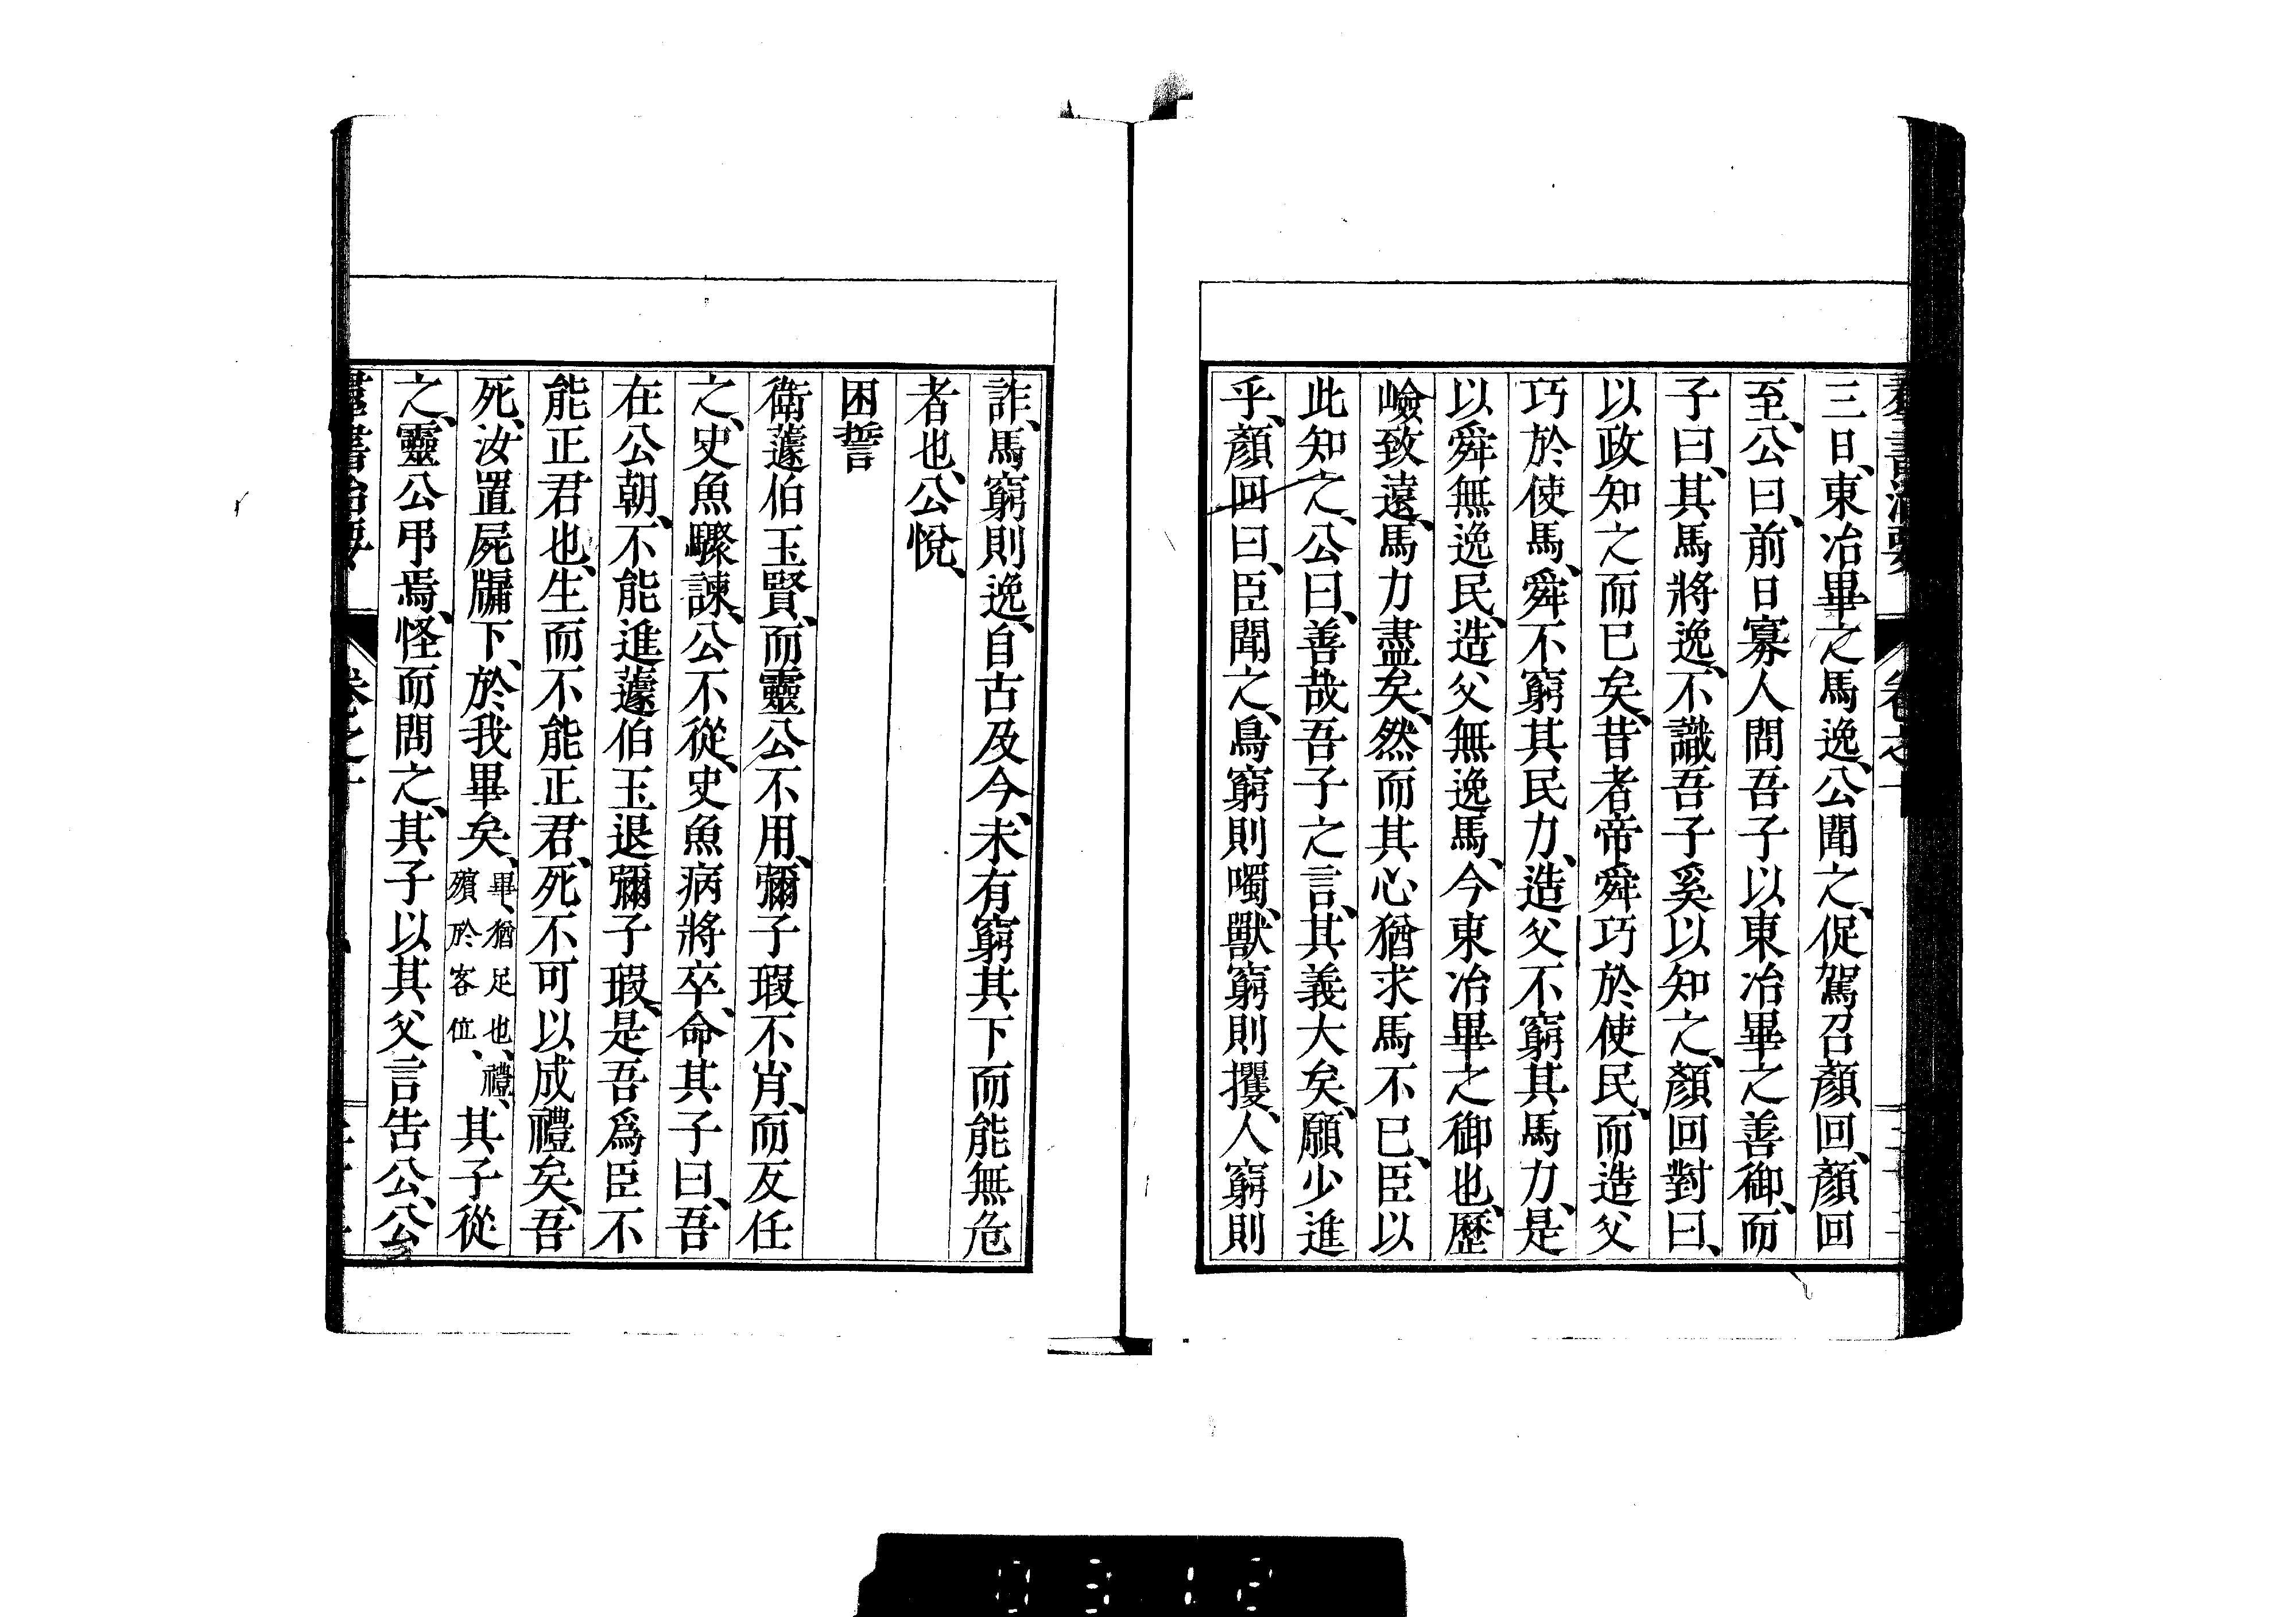 三日、東冶畢之馬逸、公聞之、促駕召顏回、顏回
至、公曰、前日寡人問吾子以東冶畢之善御、而
子曰、其馬將逸、不識吾子奚以知之、顏回對曰、
以政知之而已矣、昔者帝舜巧於使民、而造父
巧於使馬、舜不窮其民力、造父不窮其馬力、是
以舜無逸民、造父無逸馬、今東冶畢之御也、歷
嶮致遠、馬力盡矣、然而其心猶求馬不已、臣以
此知之、公曰、善哉吾子之言、其義大矣、願少進
乎、顏回曰、臣聞之、鳥窮則噣、獸窮則攫、人窮則
詐、馬窮則逸、自古及今、未有窮其下而能無危
者也、公悅、
困誓
衛蘧伯玉賢、而靈公不用、彌子瑕不肖、而反任
之、史魚驟諫、公不從、史魚病將卒、命其子曰、吾
在公朝、不能進蘧伯玉退彌子瑕、是吾爲臣不
能正君也、生而不能正君、死不可以成禮矣、吾
死、汝置屍牖下、於我畢矣、畢、猶足也、禮、殯於客位、其子從
之、靈公弔焉、怪而問之、其子以其父言告公、公